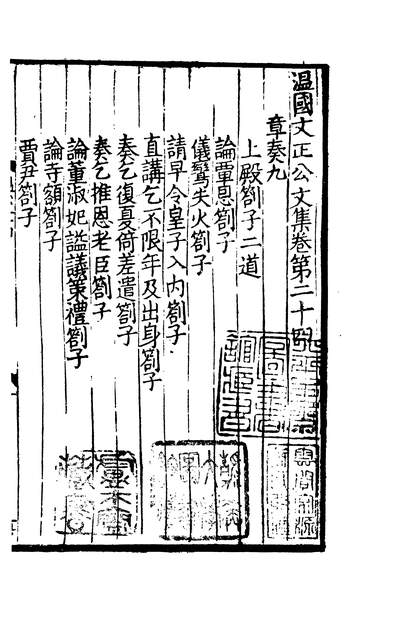 温國文正公文集卷第二十四
章奏九
上殿劄子二道
論覃恩劄子
儀鸞失火劄子
請早令皇子入內劄子
直講乞不限年及出身劄子
奏乞復夏倚差遣劄子
奏乞推恩老臣劄子
論董淑妃謚議策禮劄子
論寺額劄子
賈尹劄子